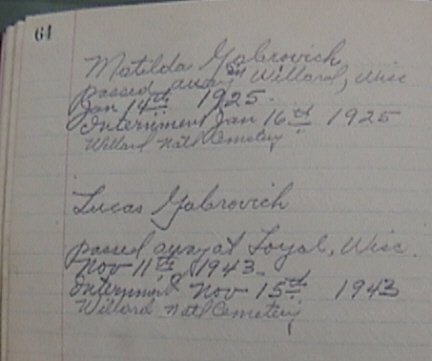 64
Matilda Gabrovich
passed away in Willard, Wisc
Jan 14th 1925.
Internment Jan 16th 1925
Willard Natl Cemetery
Lucas Gabrovich
passed away at Loyal, Wisc.
Nov 11th, 1943.
Internment Nov 15th 1943
Willard Natl Cemetery